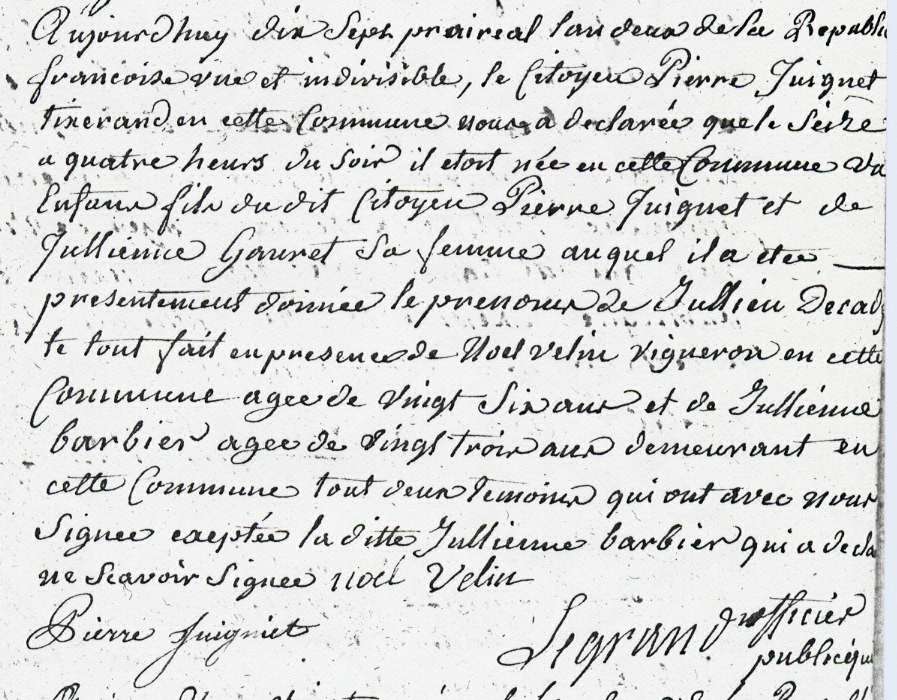 Aujourdhuy dix Sept prairéal lan deux de la Republi
francoise une et indivisible, le Citoyen Pierre Juignet
tixerand en cette Commune nous a declarée que le Seize
a quatre heurs du Soir il etoit née en cette Commune un
Enfans fils du dit Citoyen Pierre Juignet et de
Jullienne Gauret Sa femme auquel il a etee
presentement donnée le prenoms de Jullien Decad
le tout fait en presence de Noel Velin vigneron en cette
Commune agee de vingt Six ans et de Jullienne
barbier agee de vingt trois ans demeurant en
cette Commune tout deux temoins qui ont avec nous
Signee exeptée la ditte Jullienne barbier qui a decla
ne Scavoir Signee noel Velin
Pierre Juigniet
Legrand officier
publicque